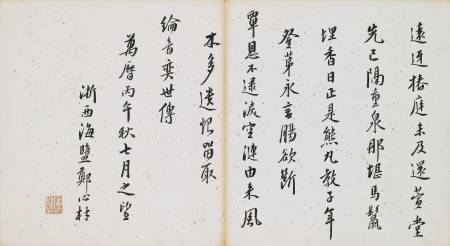 遠椿庭未及還萱堂
先已隔重泉那堪馬鬣
埋香日正是熊丸教子年
登第永言腸欲斷
覃恩不逮淚空漣由來風
木多遺恨留取
綸音奕世傳
萬曆丙午秋七月之望
浙西海鹽鄭心材